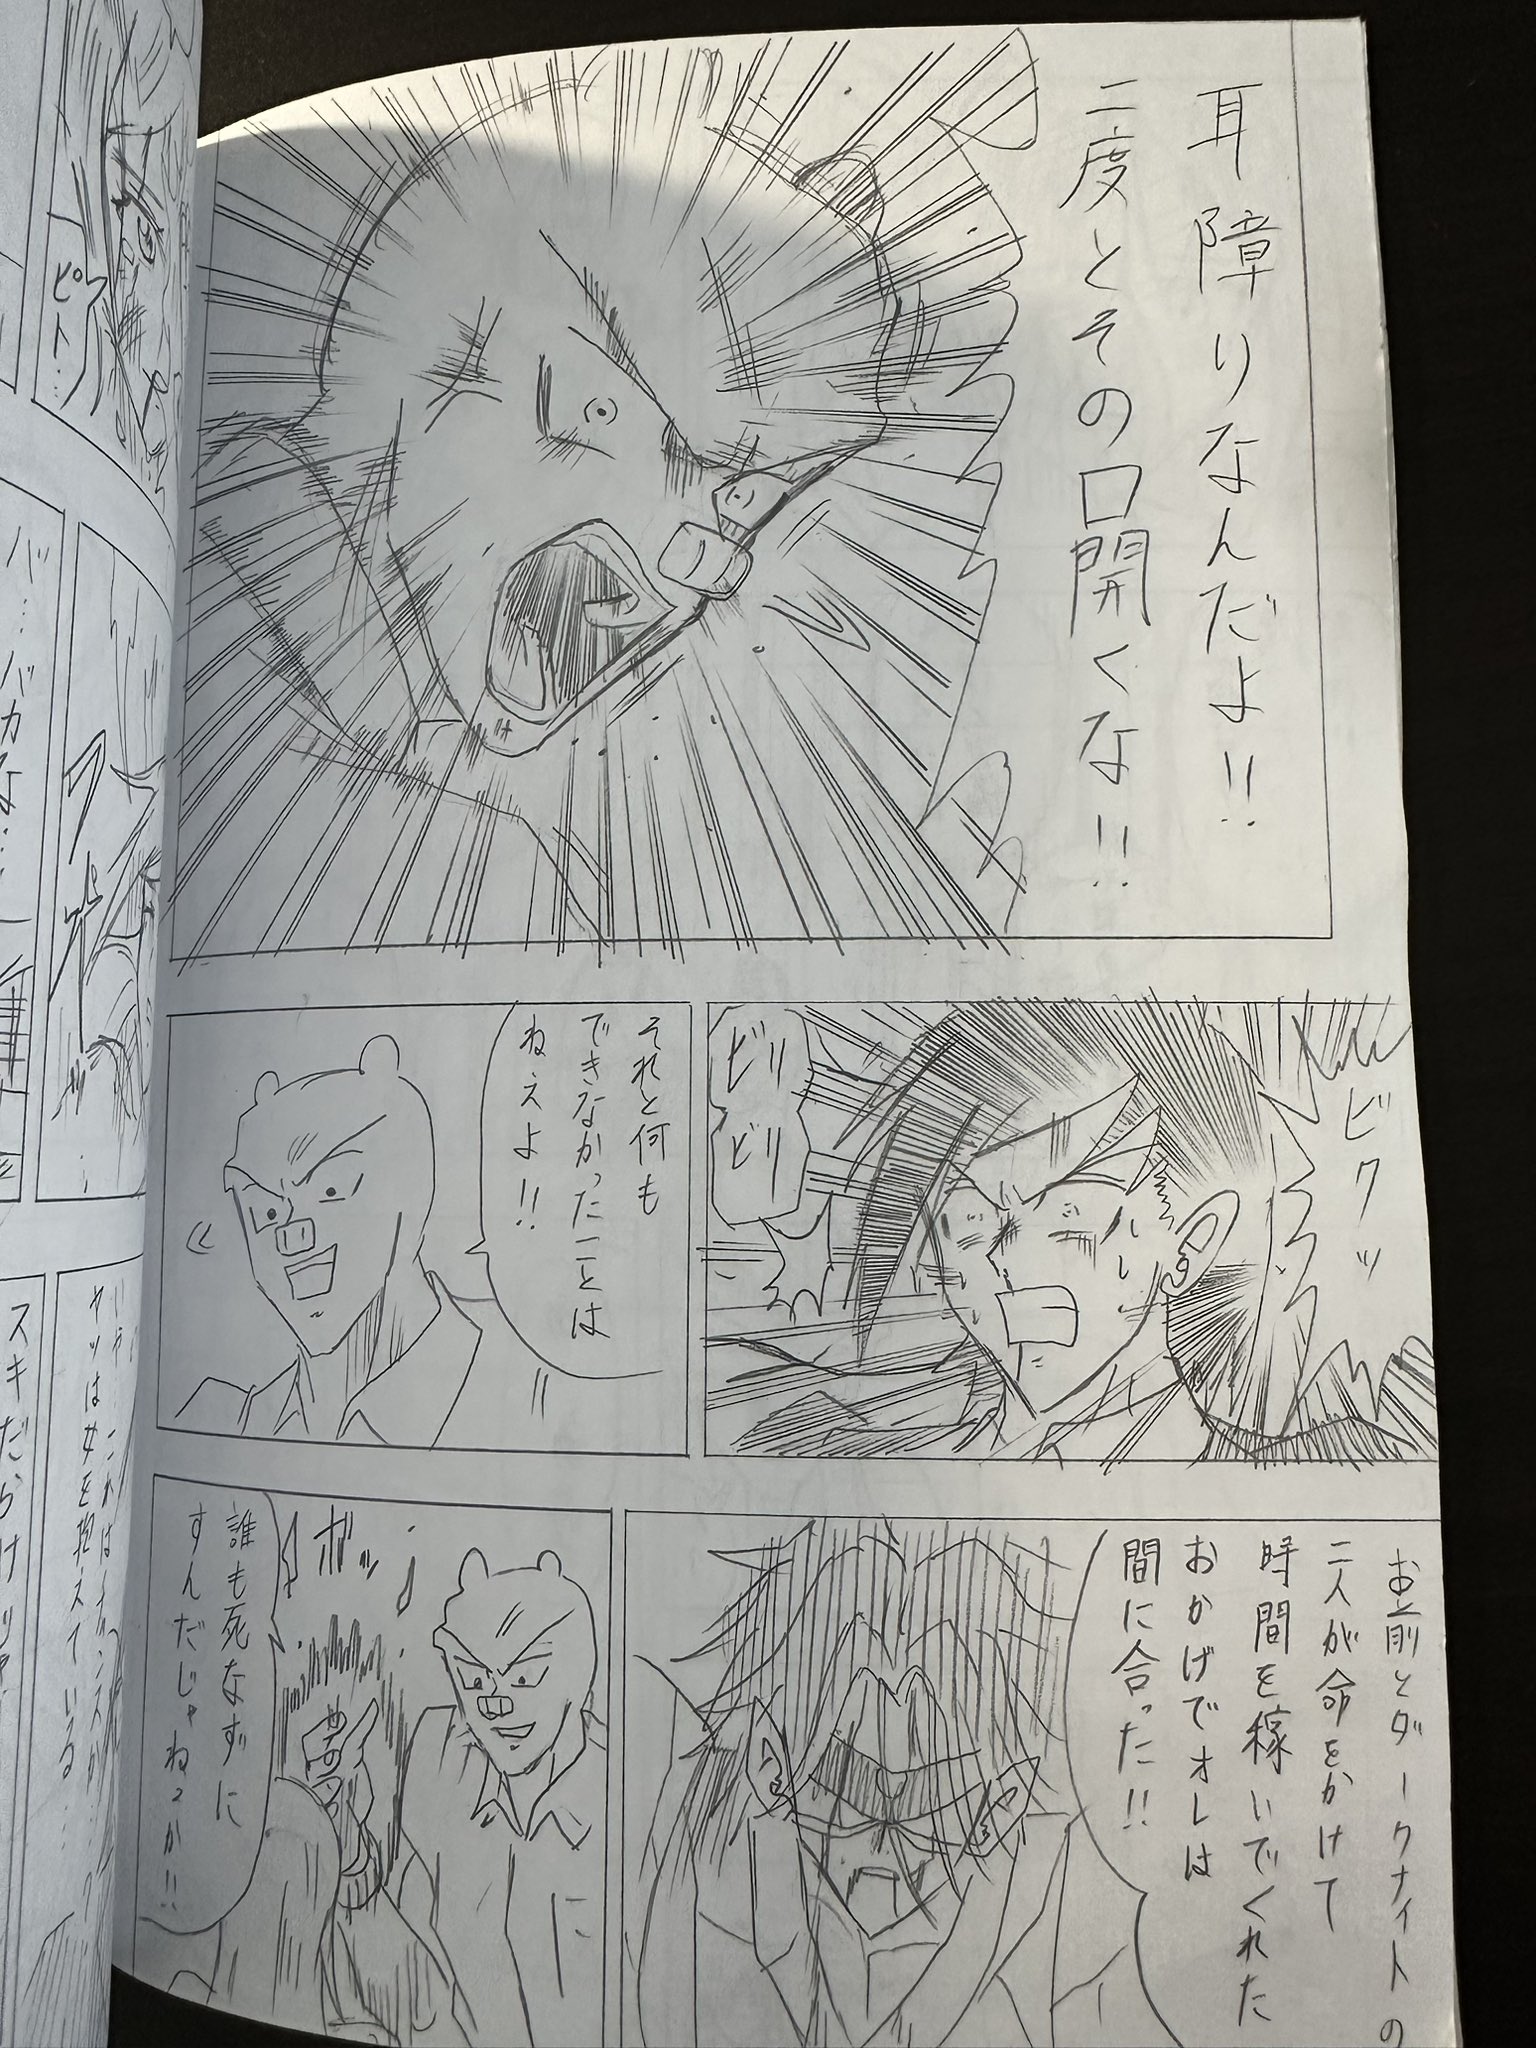 耳障りなんだよ!!
二度とその口開くな!!
ビクッ
ビリ
ビリ
それと何も
できなかったことは
ねぇよ!!
お前とダークナイトの
二人が命をかけて
時間を稼いでくれた
おかげでオレは
間に合った!!
ニ
ボッ
誰も死なずに
すんだじゃねぇか!!
ピト…
バ…バカな…
ヤツは女を抱えている…